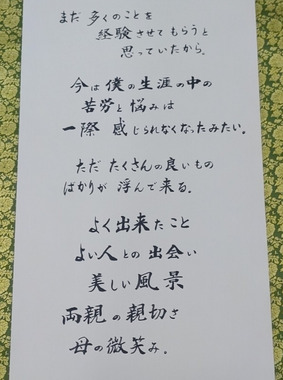 まだ 多くのことを
経験させてもらうと
思っていたから。
今は僕の生涯の中の
苦労と悩みは
一際 感じられなくなったみたい。
ただ たくさんの良いもの
ばかりが 浮んで来る.
よく出来たこと
よい人との出会い
美しい風景
両親の親切さ
母の微笑み.